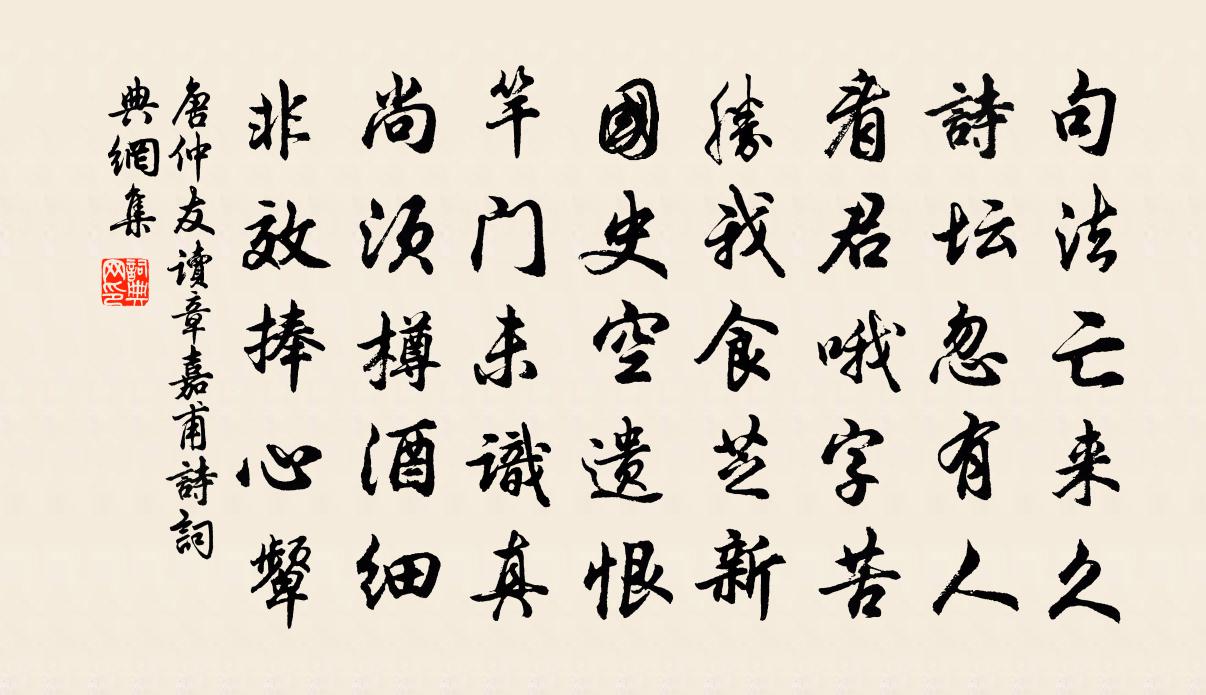 句法亡来久
詩坛忽有人
看君哦字苦
勝我食芝新
國史空遗恨
竿门未識真
尚须樽酒细
非效捧心顰
唐仲友讀章嘉甫詩詞
典網集
詞典网印